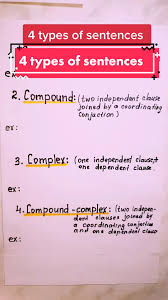 4 types of sentences
4 types of sentences
ex:
2. Compound: (two independent clause
joined by a coordinating
conjuction)
ex:
3. Complex: (one independent clause+
one dependent clause.
ex:
4. Compound-complex: (two indepen-
dent clauses joined by
a coordinating conjuction
and one dependent clause
ex: